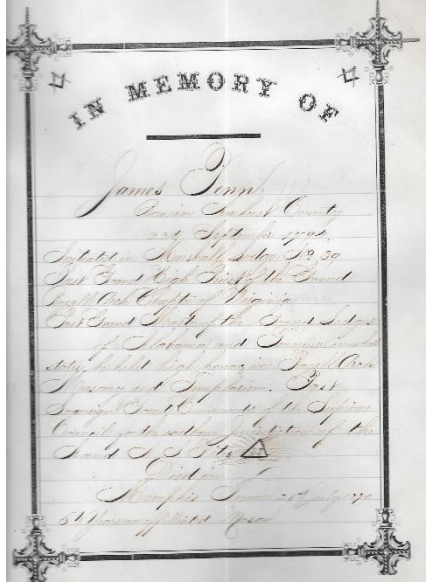 IN MEMORY OF
James Penn
Born in Amherst County
22d September 1794
Initiated in Marshall Lodge No 39
Past Grand High Priest of the Grand
Royall Arch Chapter of Virginia
Past Grand of the Grand Lodges
of Alabama and Tennessee in which
states he held high honors in Royall Arch
Masonry and Past
Sovereign Grand Commander of the Supreme
Council for the southern jurisdiction of the
Died in
Memphis July 1870
51 years an affiliated Mason